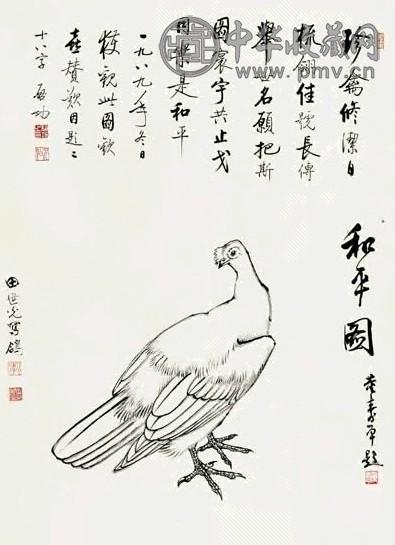 中华收藏网
www.pmv.cn
珍禽修潔自
梳翎佳號長傳
舉世名願把斯
圖寰宇共止戈
同樂是和平
一九八九年冬日
獲觀此圖歡
喜贊歎因題二
十八字 启功
和平圖
董壽平題
田世光寫鴿